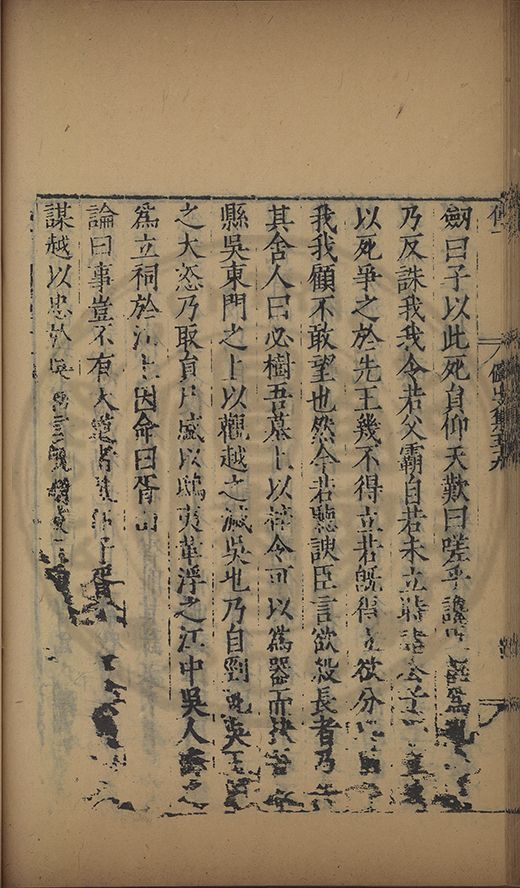 劒曰子以此死員仰天歎曰嗟乎讒嚭爲
乃反誅我我令若父霸自若未立時諸公子
以死爭之於先王幾不得立若旣得立欲分
我我顧不敢望也然今若聽諛臣言欲殺長者乃
其舍人曰必樹吾墓上以梓令可以爲器而抉吾
縣吳東門之上以觀越之滅吳也乃自剄死吳王
之大怒乃取員尸盛以鴟夷革浮之江中吳人憐之
爲立祠於江上因命曰胥山
論曰事豈不有大者子胥
謀越以忠於吳